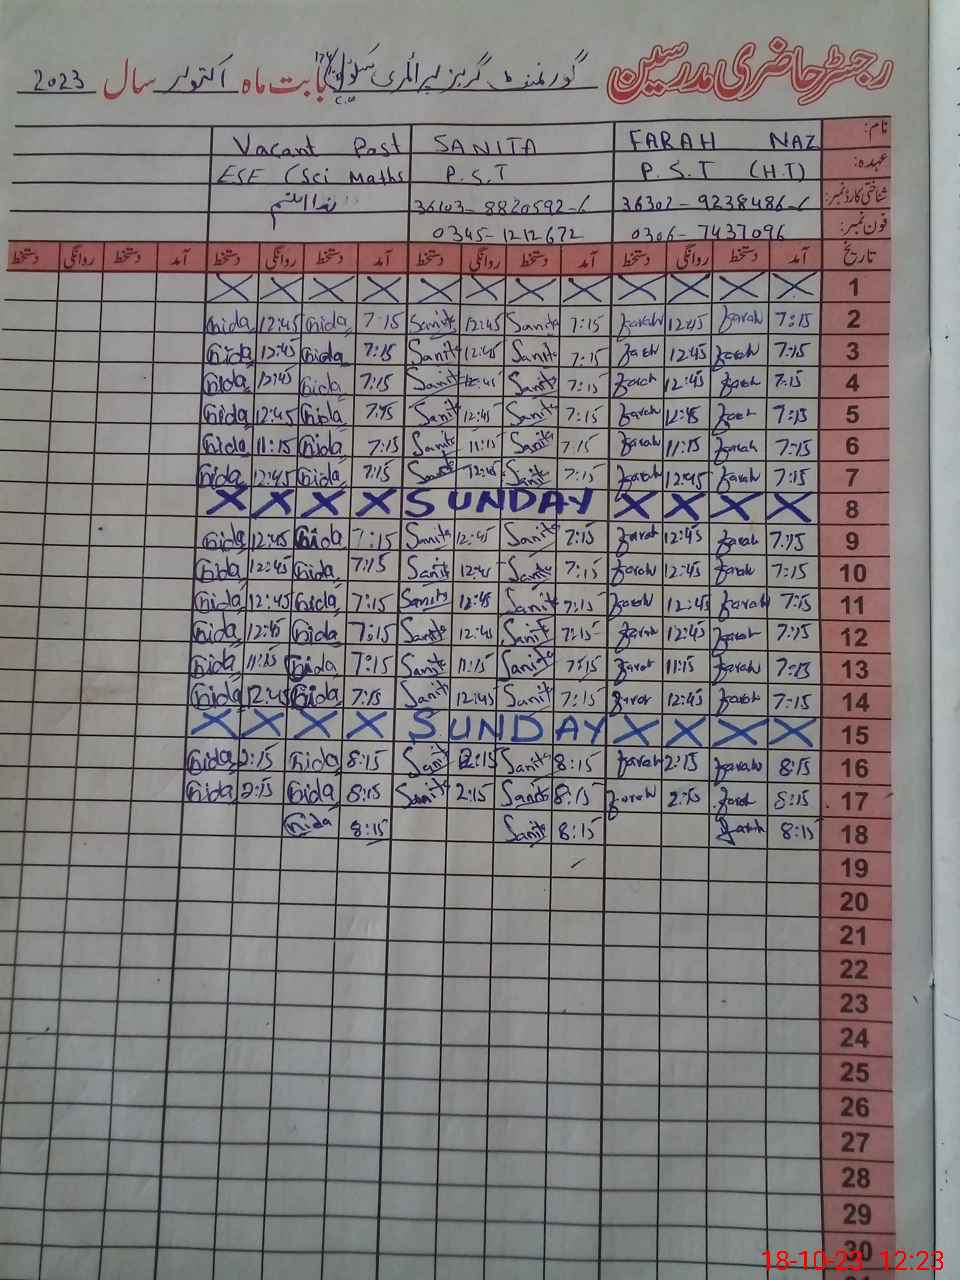 رجسٹر حاضری مدرسین گورنمنٹ گرلز پرائمری سکول بابت ماہ اکتوبر سال 2023
نام: FARAH NAZ SANITA Vacant Post
عہدہ: P.S.T (H.T) P.S.T ESE (Sci Maths
شناختی کارڈ نمبر: 36302-9238486-6 36103-8820592-6
فون نمبر: 0306-7437096 0345-1212672
تاریخ آمد دستخط روانگی دستخط آمد دستخط روانگی دستخط آمد دستخط روانگی دستخط آمد دستخط روانگی دستخط
1 X X X X X X X X X X X X
2 7:15 Farah 12:45 Farah 7:15 Sanita 12:45 Sanita 7:15 Gida 12:45 Gida
3 7:15 Farah 12:45 Farah 7:15 Sanita 12:45 Sanita 7:15 Gida 12:45 Gida
4 7:15 Farah 12:45 Farah 7:15 Sanita 12:45 Sanita 7:15 Gida 12:45 Gida
5 7:15 Farah 12:45 Farah 7:15 Sanita 12:45 Sanita 7:15 Gida 12:45 Gida
6 7:15 Farah 11:15 Farah 7:15 Sanita 11:15 Sanita 7:15 Gida 11:15 Gida
7 7:15 Farah 12:45 Farah 7:15 Sanita 12:45 Sanita 7:15 Gida 12:45 Gida
8 X X X X SUNDAY X X X X
9 7:15 Farah 12:45 Farah 7:15 Sanita 12:45 Sanita 7:15 Gida 12:45 Gida
10 7:15 Farah 12:45 Farah 7:15 Sanita 12:45 Sanita 7:15 Gida 12:45 Gida
11 7:15 Farah 12:45 Farah 7:15 Sanita 12:45 Sanita 7:15 Gida 12:45 Gida
12 7:15 Farah 12:45 Farah 7:15 Sanita 12:45 Sanita 7:15 Gida 12:45 Gida
13 7:15 Farah 11:15 Farah 7:15 Sanita 11:15 Sanita 7:15 Gida 11:15 Gida
14 7:15 Farah 12:45 Farah 7:15 Sanita 12:45 Sanita 7:15 Gida 12:45 Gida
15 X X X X SUNDAY X X X X
16 8:15 Farah 2:15 Farah 8:15 Sanita 2:15 Sanita 8:15 Gida 2:15 Gida
17 8:15 Farah 2:15 Farah 8:15 Sanita 2:15 Sanita 8:15 Gida 2:15 Gida
18 8:15 Farah 8:15 Sanita 8:15 Gida
19
20
21
22
23
24
25
26
27
28
29
30
18-10-23 12:23